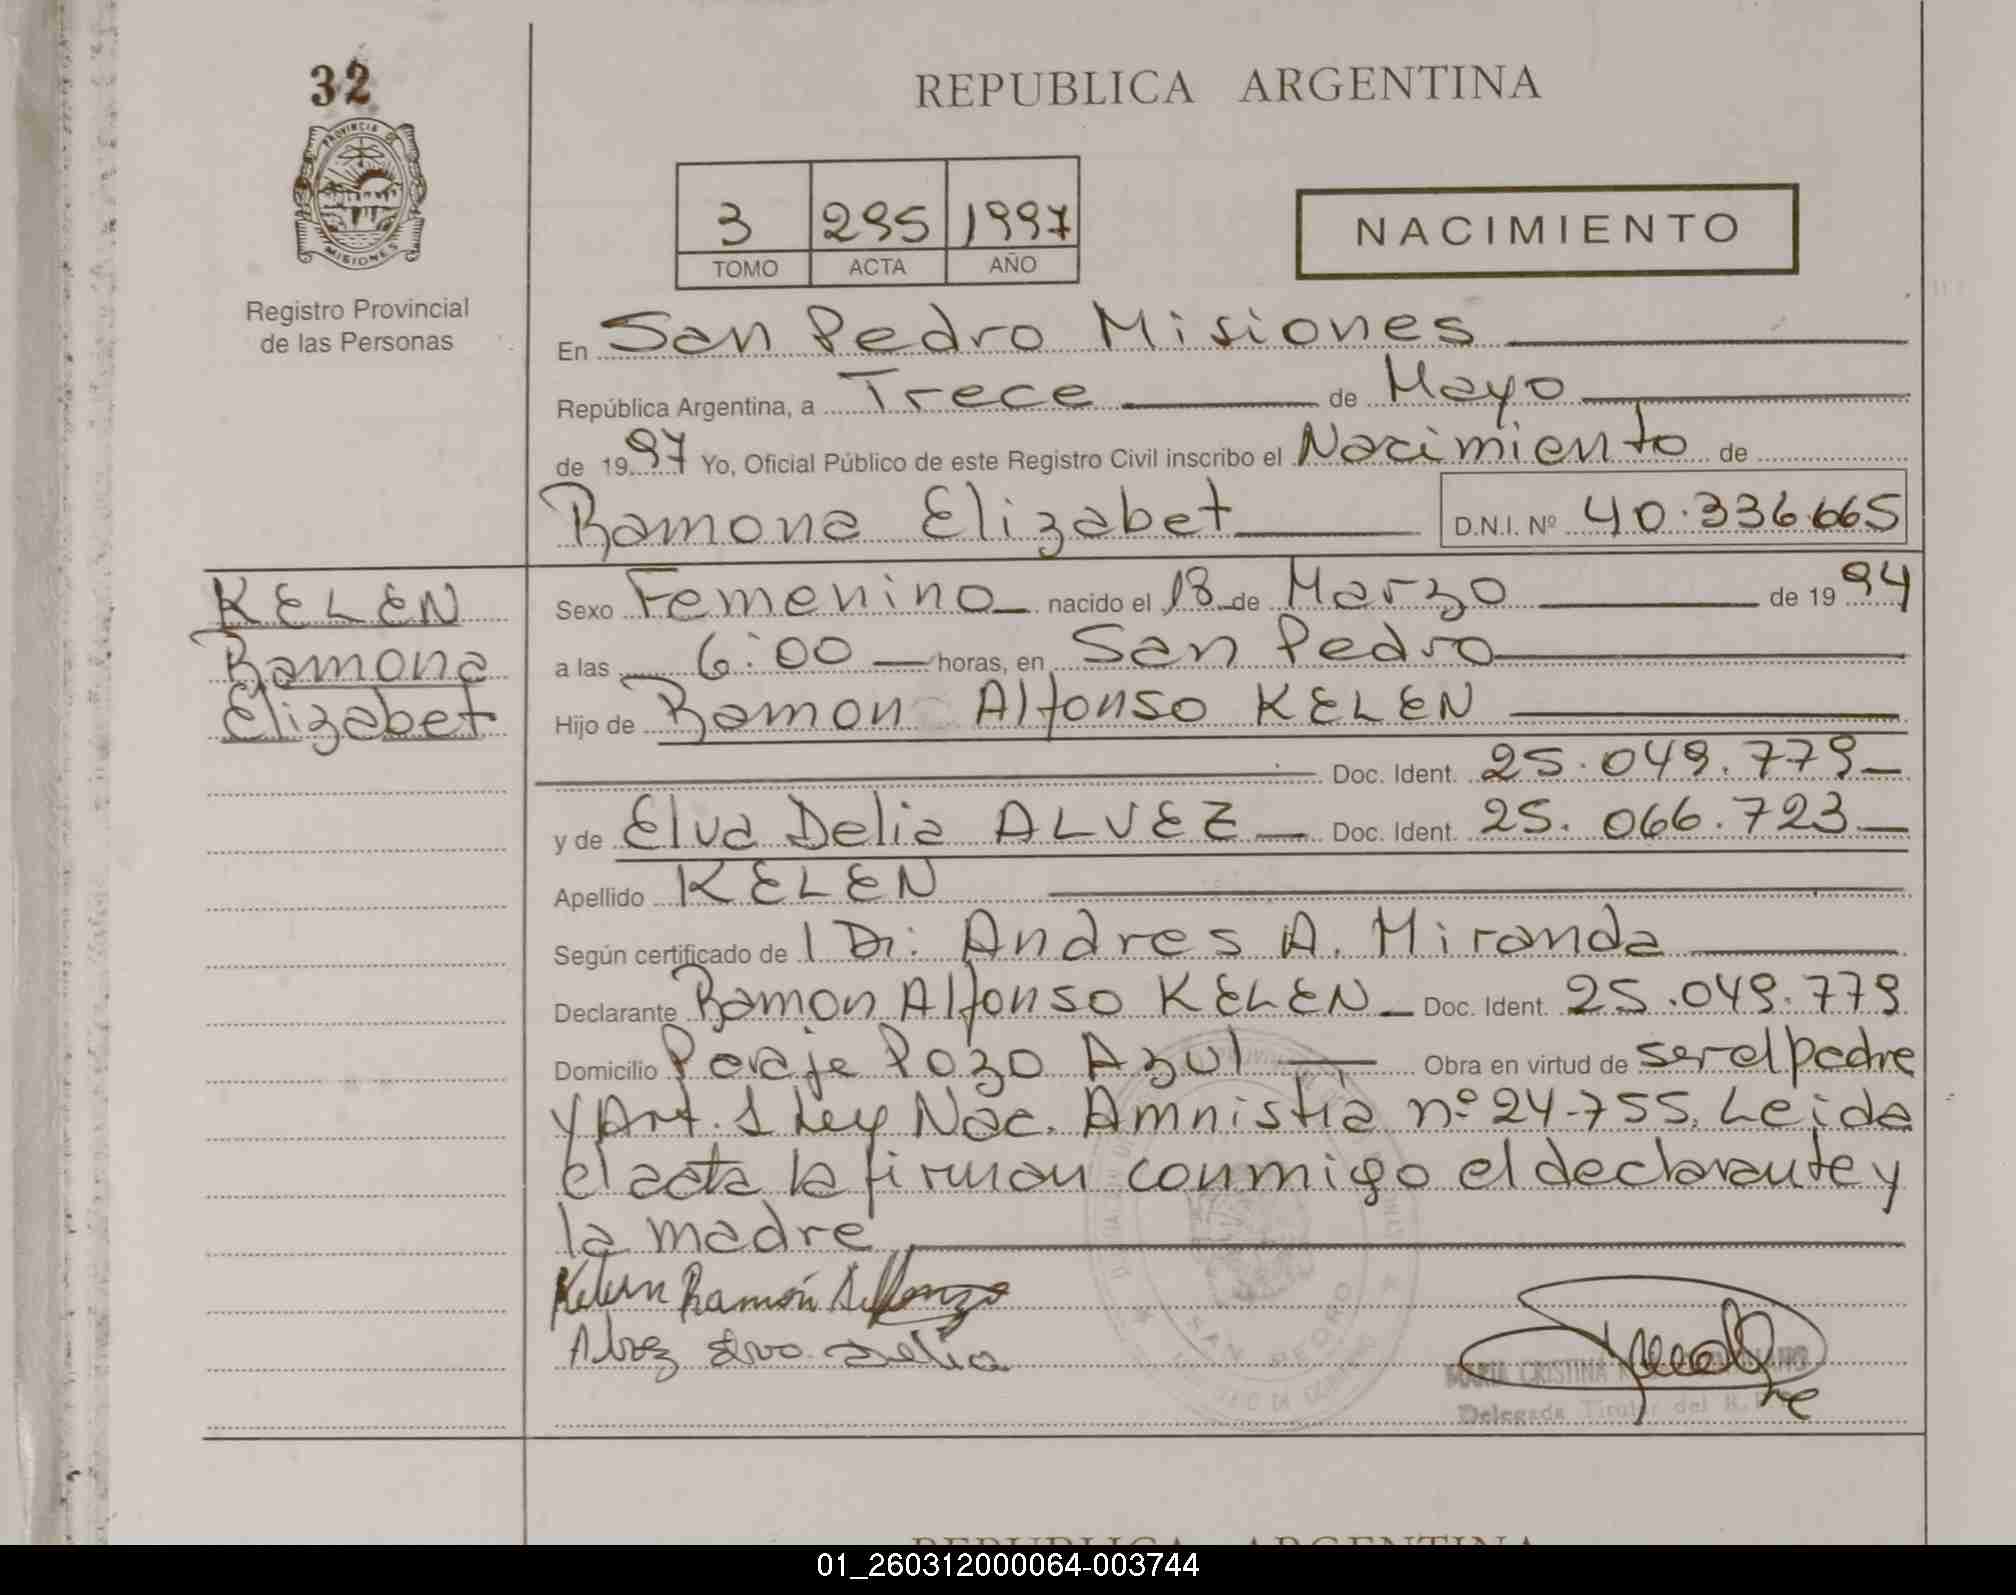 32
REPUBLICA ARGENTINA
PROVINCIA DE
MISIONES
3 295 1997
TOMO ACTA AÑO
NACIMIENTO
Registro Provincial
de las Personas
En San Pedro Misiones
República Argentina, a Trece de Mayo
de 19 97 Yo, Oficial Público de este Registro Civil inscribo el Nacimiento de
Ramona Elizabet D.N.I. Nº 40.336.665
KELEN
Ramona
Elizabet
Sexo Femenino nacido el 18 de Marzo de 19 94
a las 6:00 horas, en San Pedro
Hijo de Ramon Alfonso KELEN
Doc. Ident. 25.049.779
y de Elva Delia ALVEZ Doc. Ident. 25.066.723
Apellido KELEN
Según certificado de Dr: Andres A. Miranda
Declarante Ramon Alfonso KELEN Doc. Ident. 25.049.779
Domicilio Paraje Pozo Azul Obra en virtud de ser el padre
y Art. 1 Ley Nac. Amnistia nº 24.755. Leida
el acta la firman conmigo el declarante y
la madre
Kelen Ramón Alfonzo
Alvez Elva Delia
SAN PEDRO
MARIA CRISTINA
Delegada Titular del R.
REPUBLICA ARGENTINA
01_260312000064-003744